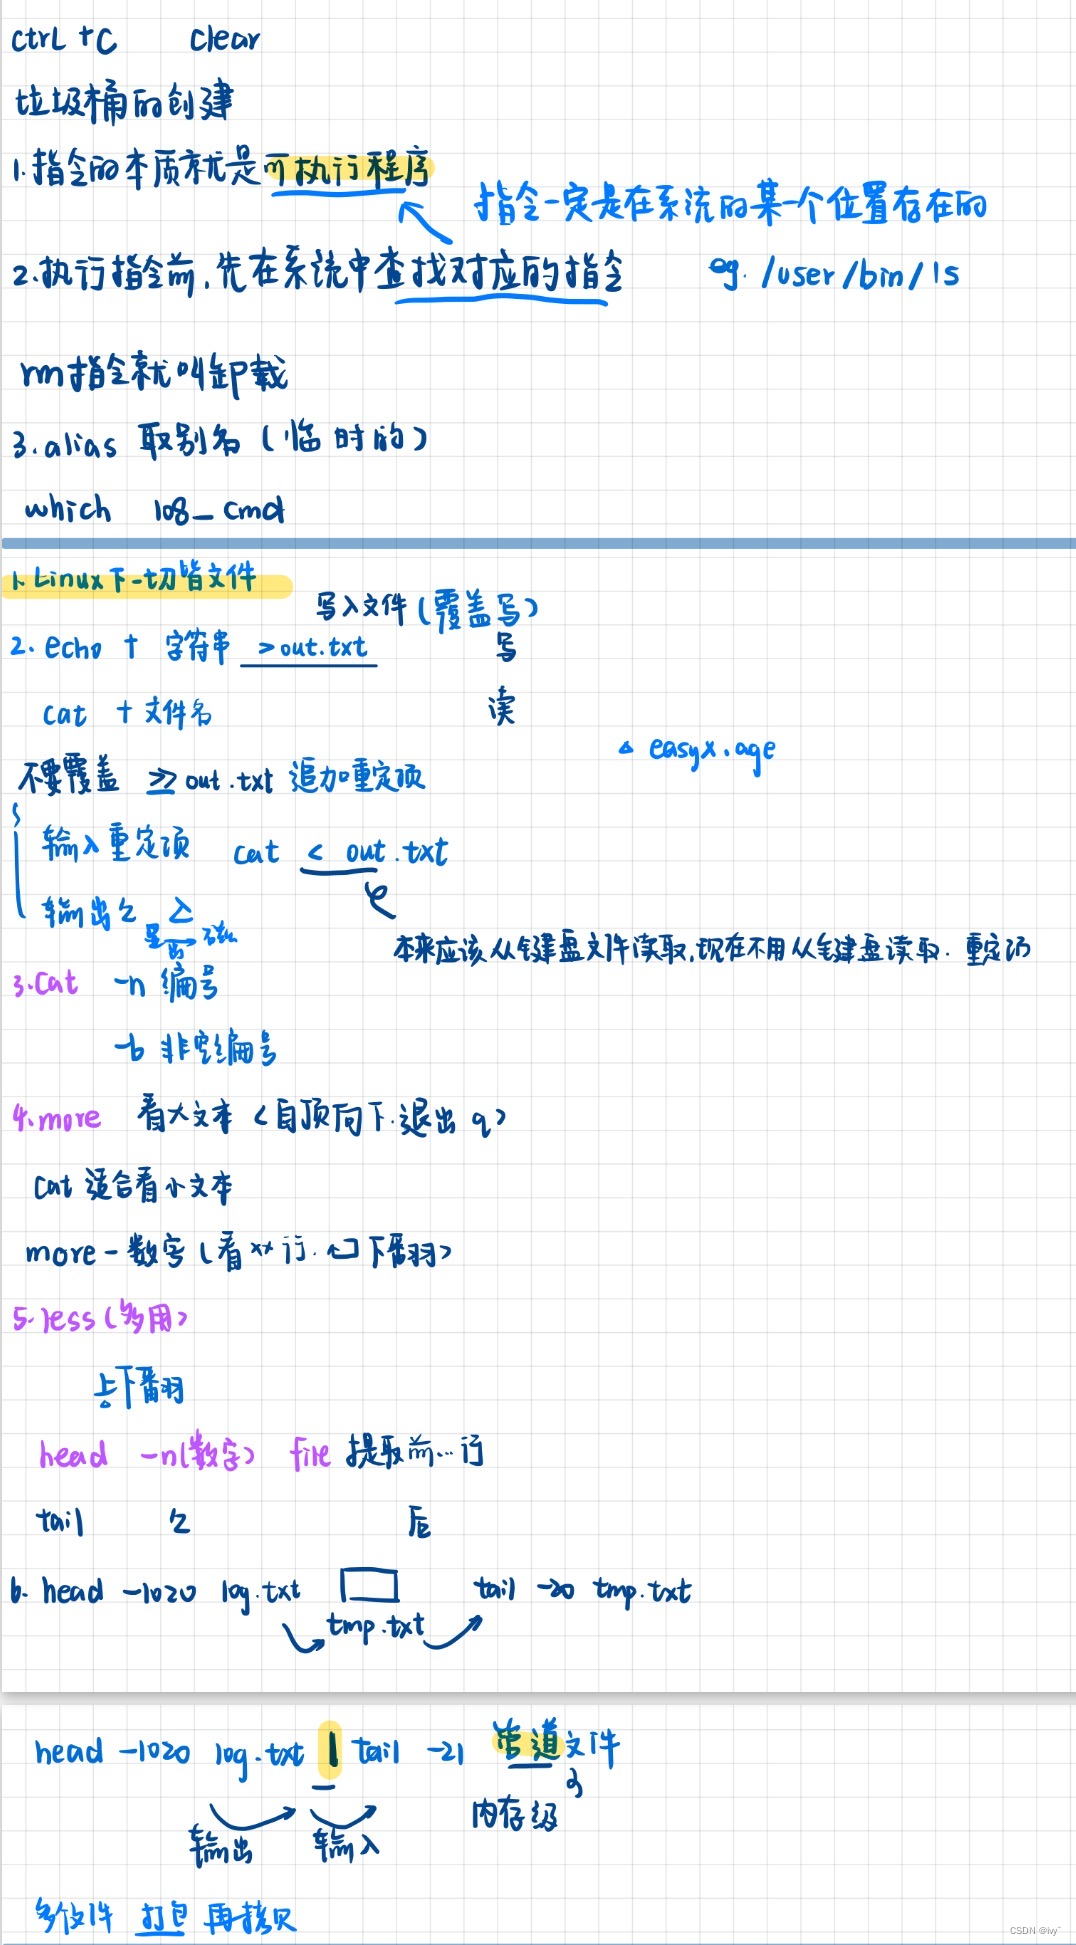 ctrl + C clear
垃圾桶的创建
1.指令的本质就是可执行程序
指令一定是在系统的某一个位置存在的
2.执行指令前,先在系统中查找对应的指令 eg. /user/bin/ls
rm指令就叫卸载
3.alias 取别名(临时的)
which 108_cmd
1. Linux下一切皆文件
写入文件(覆盖写)
2. echo + 字符串 >out.txt 写
cat + 文件名 读
△ easyx.age
不要覆盖 >> out.txt 追加重定项
输入重定项 cat < out.txt
输出 >
本来应该从键盘文件读取,现在不用从键盘读取. 重定向
3.Cat -n 编号
-b 非空编号
4.more 看大文本(自顶向下.退出 q)
cat 适合看小文本
more-数字(看xx行. 下翻)
5.less(多用)
上下翻
head -n(数字) file 提取前...行
tail 后
6. head -1020 log.txt tail -20 tmp.txt
tmp.txt
head -1020 log.txt | tail -21 管道文件
输出 输入 内存级
多个文件 打包 再拷贝
CSDN @ivy